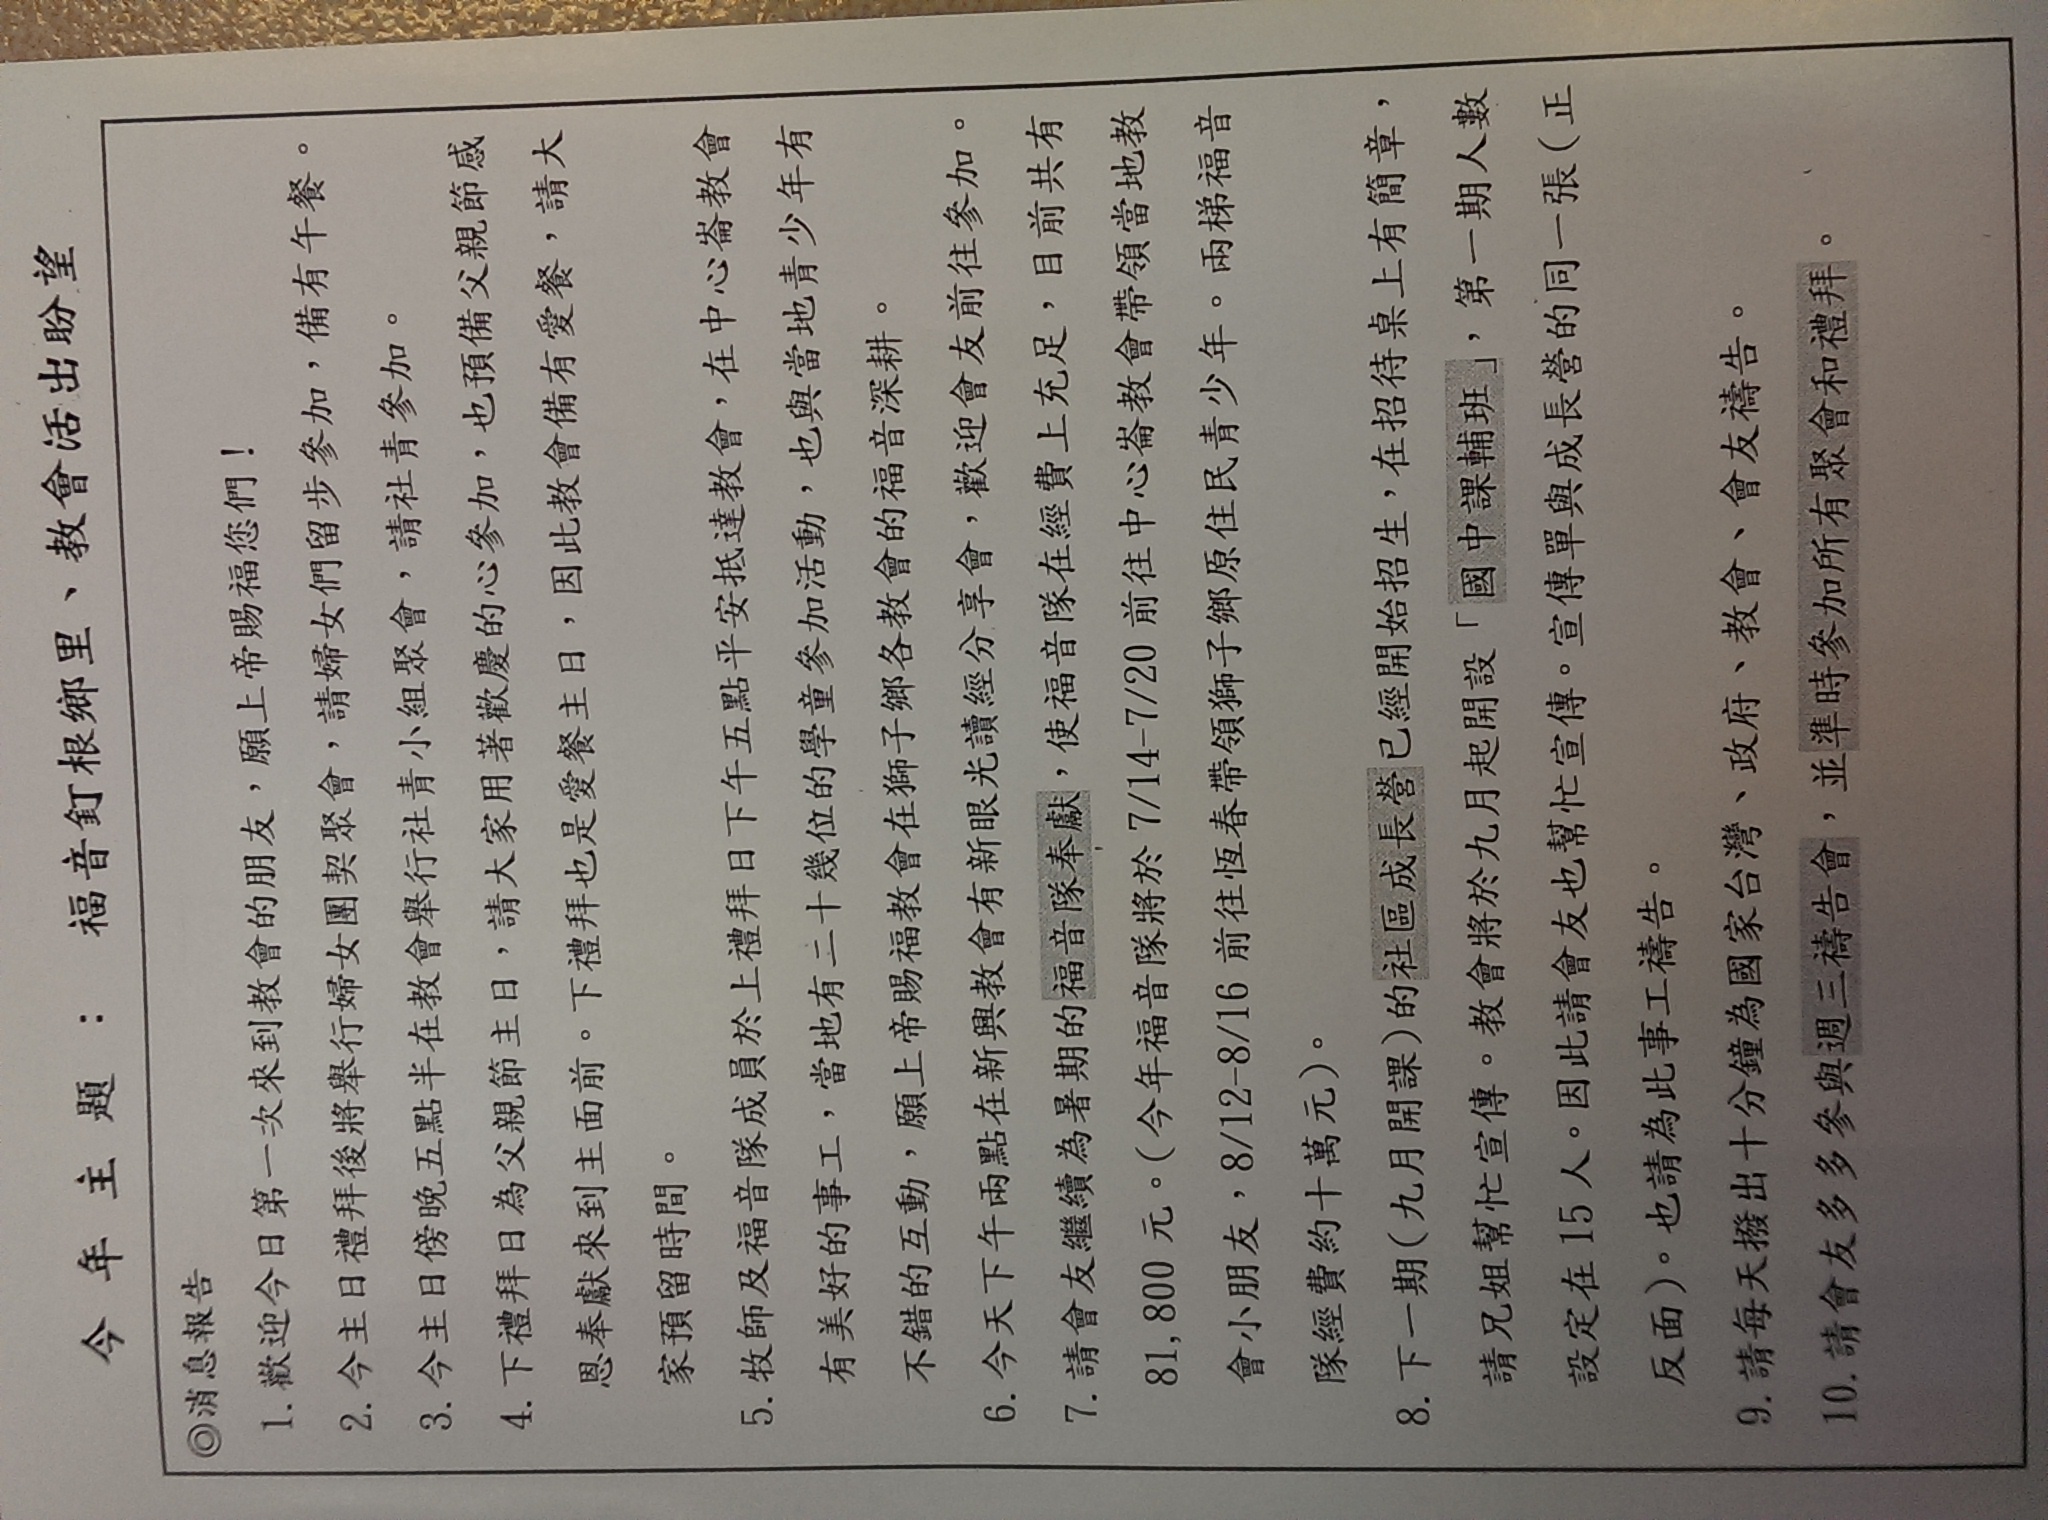 今年主題：福音釘根鄉里、教會活出盼望
◎消息報告
1. 歡迎今日第一次來到教會的朋友，願上帝賜福您們！
2. 今主日禮拜後將舉行婦女團契聚會，請婦女們留步參加，備有午餐。
3. 今主日傍晚五點半在教會舉行社青小組聚會，請社青參加。
4. 下禮拜日為父親節主日，請大家用著歡慶的心參加，也預備父親節感
恩奉獻來到主面前。下禮拜也是愛餐主日，因此教會備有愛餐，請大
家預留時間。
5. 牧師及福音隊成員於上禮拜日下午五點平安抵達教會，在中心崙教會
有美好的事工，當地有二十幾位的學童參加活動，也與當地青少年有
不錯的互動，願上帝賜福教會在獅子鄉各教會的福音深耕。
6. 今天下午兩點在新興教會有新眼光讀經分享會，歡迎會友前往參加。
7. 請會友繼續為暑期的福音隊奉獻，使福音隊在經費上充足，目前共有
81,800 元。（今年福音隊將於 7/14-7/20 前往中心崙教會帶領當地教
會小朋友，8/12-8/16 前往恆春帶領獅子鄉原住民青少年。兩梯福音
隊經費約十萬元）。
8. 下一期（九月開課）的社區成長營已經開始招生，在招待桌上有簡章，
請兄姐幫忙宣傳。教會將於九月起開設「國中課輔班」，第一期人數
設定在 15 人。因此請會友也幫忙宣傳。宣傳單與成長營的同一張（正
反面）。也請為此事工禱告。
9. 請每天撥出十分鐘為國家台灣、政府、教會、會友禱告。
10. 請會友多多參與週三禱告會，並準時參加所有聚會和禮拜。